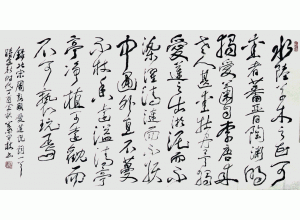 水陸草木之花可
愛者甚蕃晉陶淵明
獨愛菊自李唐來
世人甚愛牡丹予獨
愛蓮之出淤泥而不
染濯清漣而不妖
中通外直不蔓
不枝香遠溢清亭
亭淨植可遠觀而
不可褻玩焉
錄北宋周敦頤愛蓮說